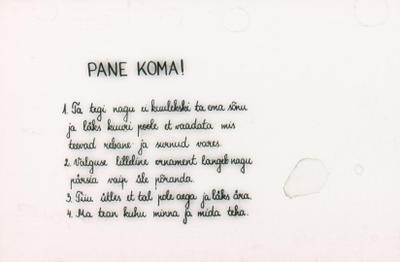 PANE KOMA!
1. Ta tegi nagu ei kuulekski ta ema sõnu
ja läks kuuri poole et vaadata mis
teevad rebane ja surnud vares.
2. Valguse lilleline ornament langeb nagu
pärsia vaip üle põranda.
3. Piiu ütles et tal pole aega ja läks ära.
4. Ma tean kuhu minna ja mida teha.